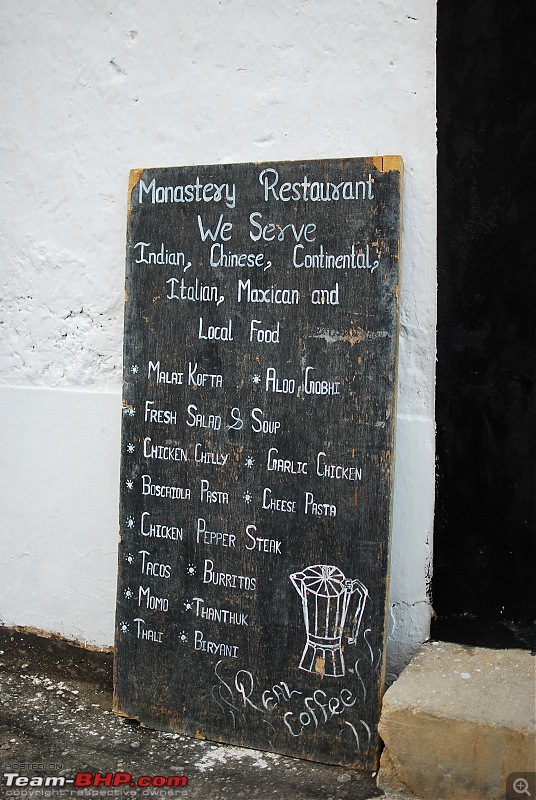 Monastery Restaurant
We Serve
Indian, Chinese, Continental,
Italian, Maxican and
Local Food
* Malai Kofta * Aloo Gobhi
* Fresh Salad & Soup
* Chicken Chilly * Garlic Chicken
* Boscaiola Pasta * Cheese Pasta
* Chicken Pepper Steak
* Tacos * Burritos
* Momo * Thanthuk
* Thali * Biryani
Real
Coffee
HOSTED ON
Team-BHP.com
copyright respective owners